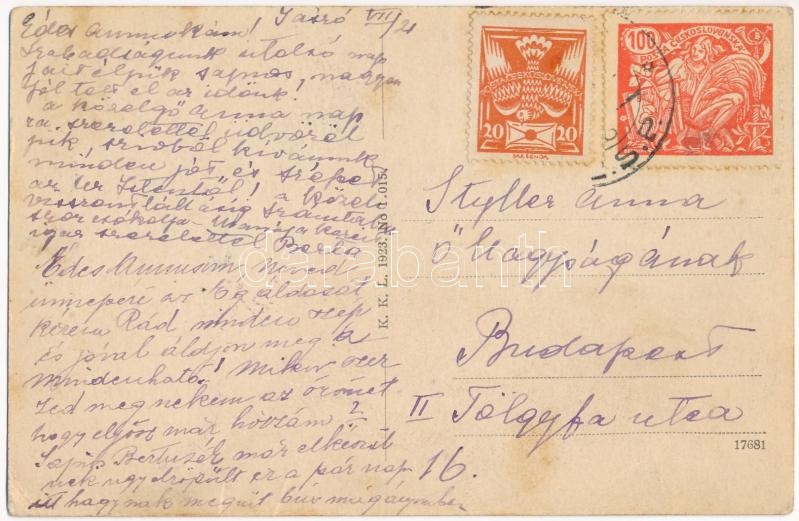 Jászó VII/21
Édes Annuskám!
Szabadságunk utolsó nap
jait éljük sajnos, nagyon
jól telt el az időnk!
a közelgő Anna nap
ra szeretettel üdvözöl
jük, szívből kívánunk
minden jót és szépet
az Úr Istentől! a közeli
viszontlátásig számtalan
szor csókolja
igaz szeretettel Berta
Édes Annusom neved
ünnepére az Ég áldását
kérem Rád minden szép
és jóval áldjon meg a
mindenható! Mikor szer
zed meg nekem az örömet
hogy eljössz már hozzám?
Sajnos már elkészül
nek úgy elröpült ez a pár nap
itt hagynak megint bús magányomban
K. K. L. 1923. No 1. 015.
20 20
POŠTA ČESKOSLOVENSKÁ
100
POŠTA ČESKOSLOVENSKÁ
Styller Anna
Ő Nagyságának
Budapest
II Tölgyfa utca
16.
17681
darabanth